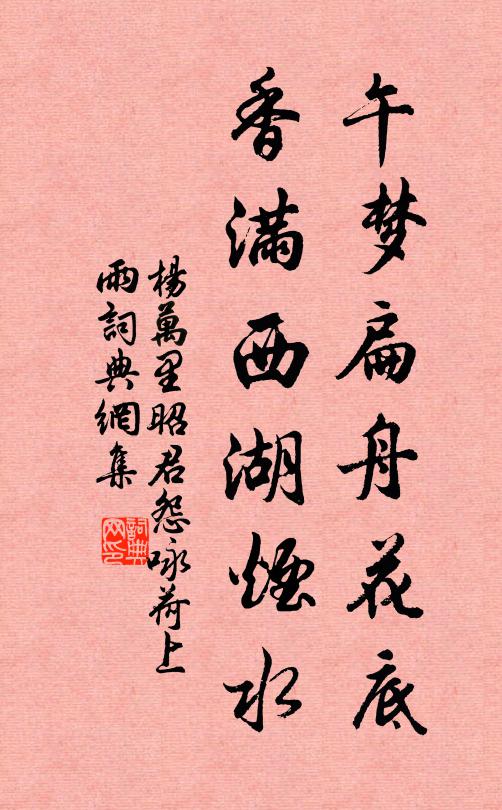 午梦扁舟花底
香满西湖煙水
楊萬里昭君怨咏荷上
雨詞典網集
詞典
网印